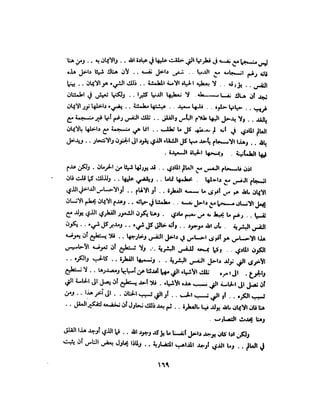 ليس منسجما مع نفسه في فطرتها التي خلقت عليها في عبادة الله .. والايمان به .. ومن هنا
فانه رغم انسجامه مع الدنيا .. شقي داخل نفسه .. لأن هناك شيئا داخل هذه
النفس .. يؤرقه .. لا يعطيها الحياة الآمنة المطمئنة .. ذلك الشيء هو الايمان .. بينما
نجد أن هناك نفسا بسيطة لا تعطيها الدنيا كثيرا .. ولكنها تعيش في اطمئنان
غريب .. حياتها حلوة .. قلبها سعيد .. عيشتها مطمئنة .. يضيء داخلها نور الايمان
بالله .. ولا يدخل اليها ظلام اليأس والقلق .. تلك النفس رغم أنها غير منسجمة مع
العالم المادي في أنه لم يعطها كل ما تطلب .. انما هي منسجمة مع داخلها بالايمان
بالله .. وهذا الانسجام يأخذ منها كل الشقاء الذي يقود الى الجنون والانتحار .. ويدخل
فيها الطمأنينة .. ويمنحها الحياة السعيدة .
اذن فانسجام النفس مع العالم المادي .. قد يورثها شيئا من الحرمان . ولكن عدم
انسجام النفس مع داخلها .. يحطمها تماما .. ويقضي عليها .. ولذلك كما قلت فان
الايمان بالله هو من أقوى ما تسمعه الفطرة .. أو الالهام .. أو الاحساس الداخلي الذي
يجعل الانسان منسجما مع داخل نفسه .. مطمئنا في حياته .. وعدم الايمان يحطم الانسان
نفسيا .. رغم ما يحيط به من نعيم مادي .. وهنا يكون الشعور الفطري الذي يولد مع
النفس البشرية .. بأن الله موجود .. وأنه خالق كل شيء .. ومدبر كل شيء .. يكون
هذا الاحساس هو أقوى احساس في داخل النفس وخارجها .. فلا يستطيع أن يعوضه
الكون المادي .. وكما يمنحه للنفس البشرية .. ولا تستطيع أن تعوضه الأحاسيس
الأخرى التي تولد داخل النفس البشرية .. وتسميها الفطرة .. كالحب والكره ..
والجوع .. الى آخره تلك الأشياء التي مهما تحدثنا عن أسبابها ومصدرها .. لا نستطيع
أن نصل الى الحاسة التي تسبب هذه الأشياء . فلا أحد يستطيع أن يصل الى الحاسة التي
تسبب الكره .. أو التي تسبب الحب .. أو التي تسبب الحنان .. الى آخر هذا .. ومن
هنا فان الايمان بالله يولد فينا بالفطرة .. ثم بعد ذلك نحاول أن نخضعه لتفكير العقل ..
وهنا يحدث التضارب .
ولكن اذا كان يوجد داخل أنفسنا ما يؤكد وجود الله .. فما الذي أوجد هذا القلق
في العالم .. وما الذي أوجد المذاهب المتضاربة .. ولماذا يحاول بعض الناس أن يثبت
١٦٩